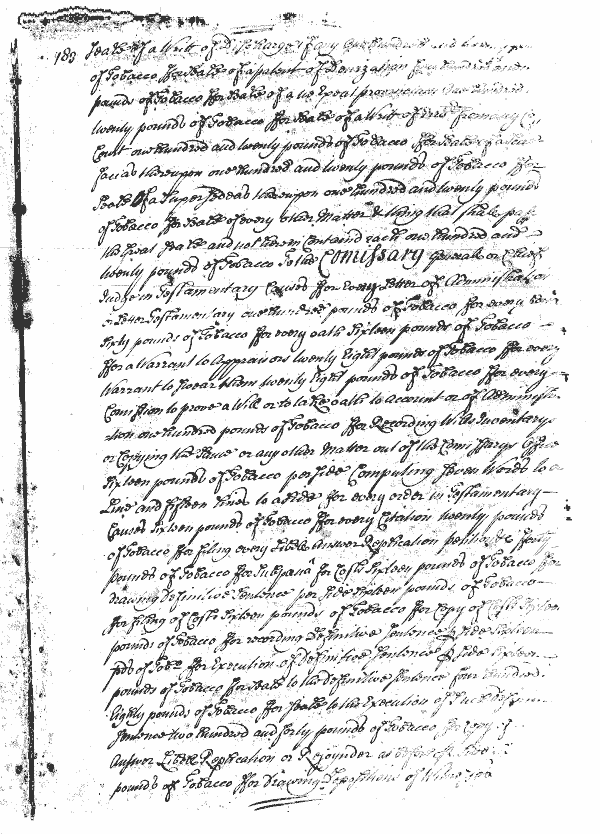 183 Seale of a Writt of Discharge of any one hundred and
of Tobacco ffor Seale of a patent of Denization ffive hundred
pounds of Tobacco ffor Seale of a Speciall one hundred
twenty pounds of Tobacco ffor Seale of a Writt of Error from any
Court one hundred and twenty pounds of Tobacco ffor Seale
facias thereupon one hundred and twenty pounds of Tobacco ffor
Seale of a Supersedeas thereupon one hundred and twenty pounds
of Tobacco ffor Seale of every other Matter & thing that shall pass
the Great Seale and not herein Contained each one hundred and
twenty pounds of Tobacco To the Comissary Generall or Chief
Judge in Testamentary Causes ffor every Letter of Administration
or Letter Testamentary one hundred pounds of Tobacco ffor every
Sixty pounds of Tobacco ffor every oath Sixteen pounds of Tobacco
ffor a Warrant to Appraisors twenty Eight pounds of Tobacco ffor every
Warrant to Swear them twenty Eight pounds of Tobacco ffor every
Comission to prove a Will or to take oath to account or of Administra
tion one hundred pounds of Tobacco ffor Recording Wills Inventarys
or Copying the Same or any other Matter out of the Comissarys Office
Sixteen pounds of Tobacco per side Computing Seven Words to a
Line and fifteen Lines to a side ffor every order in Testamentary
Causes Sixteen pounds of Tobacco ffor every Citation twenty pounds
of Tobacco ffor filing every Libell Answer Replication petition & forty
pounds of Tobacco ffor Subpana for Cost Sixteen pounds of Tobacco ffor
drawing Definitive Sentence per side Sixteen pounds of Tobacco
ffor filing of Cost Sixteen pounds of Tobacco ffor Copy of Cost Sixteen
pounds of Tobacco ffor recording Definitive Sentence p side Sixteen
pds of Tobo ffor Execution of Definitive Sentence p side Sixteen
pounds of Tobacco ffor Seale to the Definitive Sentence four hundred
Eighty pounds of Tobacco ffor Seale to the Execution of Such
Sentence two hundred and forty pounds of Tobacco ffor Copy
Answer Libell Replication or Rejoynder as
pounds of Tobacco ffor drawing Depositions of Witnesses